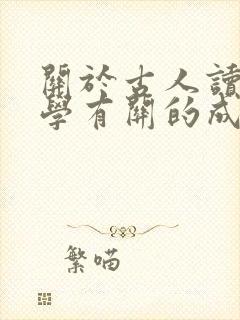 關於古人讀
學有關的成
繁喵